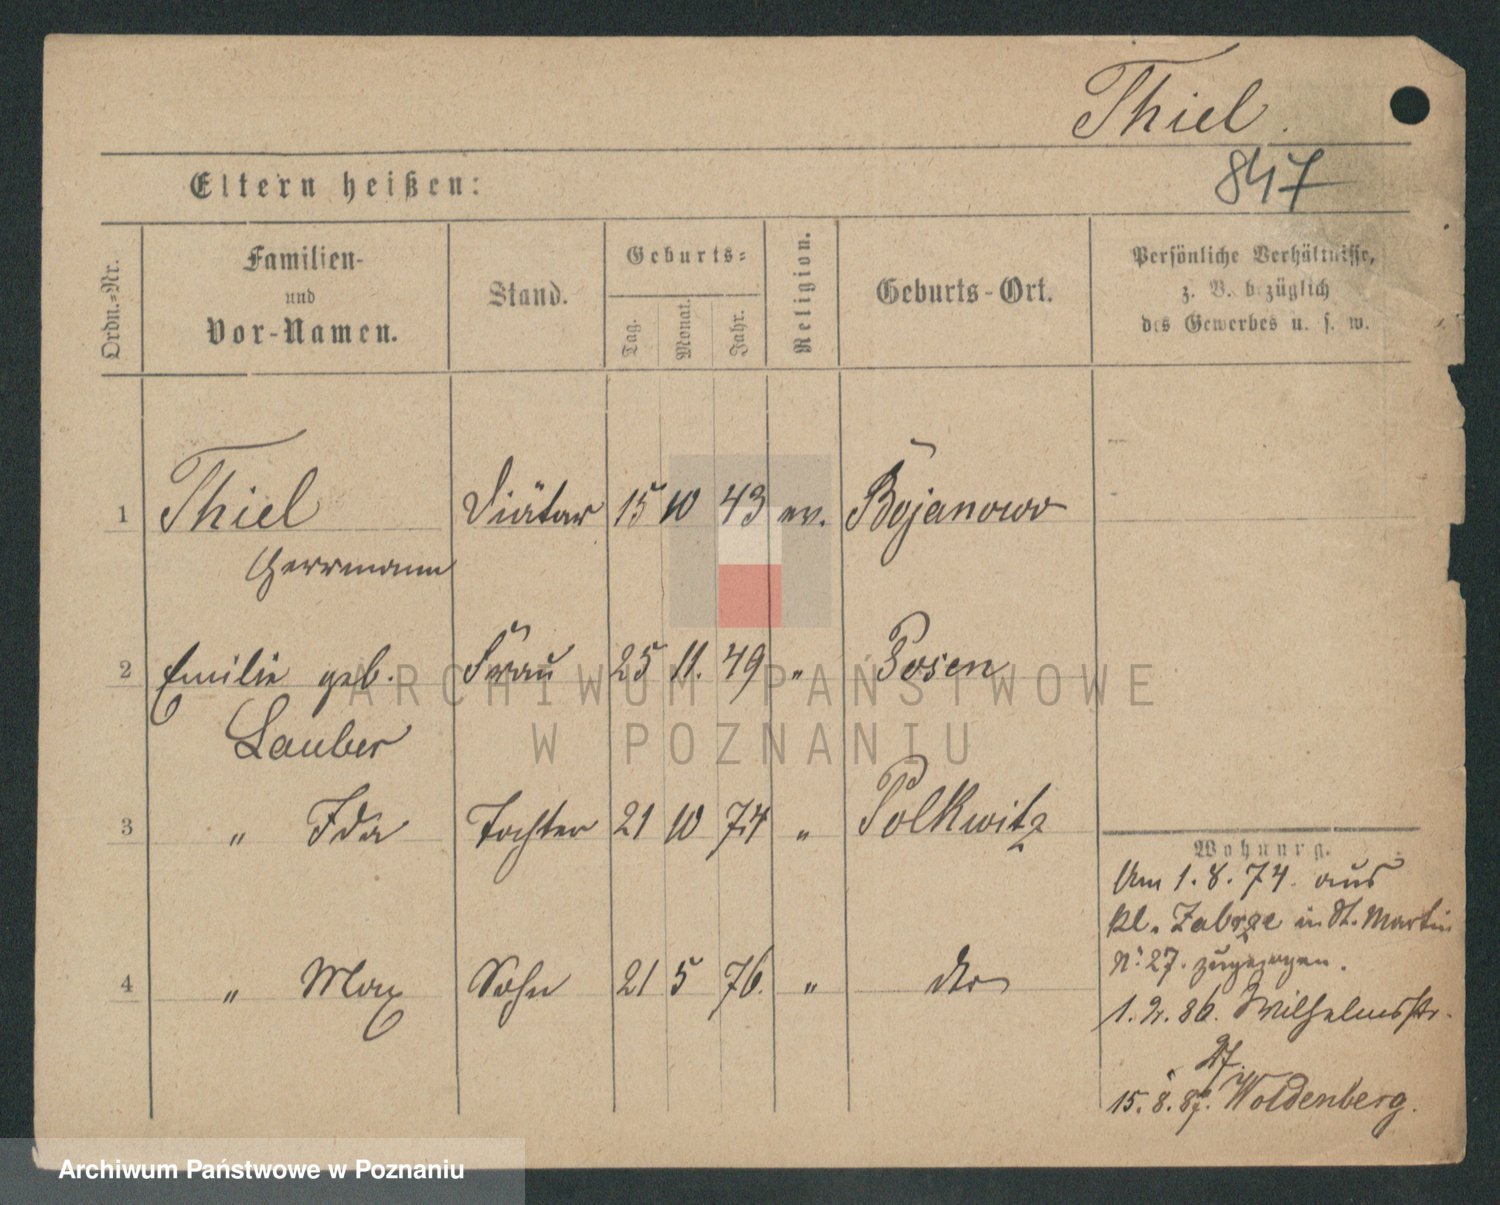 Thiel.
847
Eltern heißen:
Ordn.=Nr.
Familien-
und
Vor-Namen.
Stand.
Geburts=
Tag.
Monat.
Jahr.
Religion.
Geburts-Ort.
Persönliche Verhältnisse,
z. B. bezüglich
des Gewerbes u. s. w.
1 Thiel Diätar 15 10 43 ev. Bojanowo
Herrmann
2 Emilie geb. Frau 25 11. 49 " Posen
Lauber
3 " Ida Tochter 21 10 74 " Polkwitz
4 " Max Sohn 21 5 76. " dto
Wohnung.
Am 1. 8. 74. aus
Kl. Zabrze in St. Martin
N: 27. zugezogen.
1. 2. 86. Wilhelmsstr.
27.
15. 8. 87. Woldenberg.
ARCHIWUM PAŃSTWOWE
W POZNANIU
Archiwum Państwowe w Poznaniu